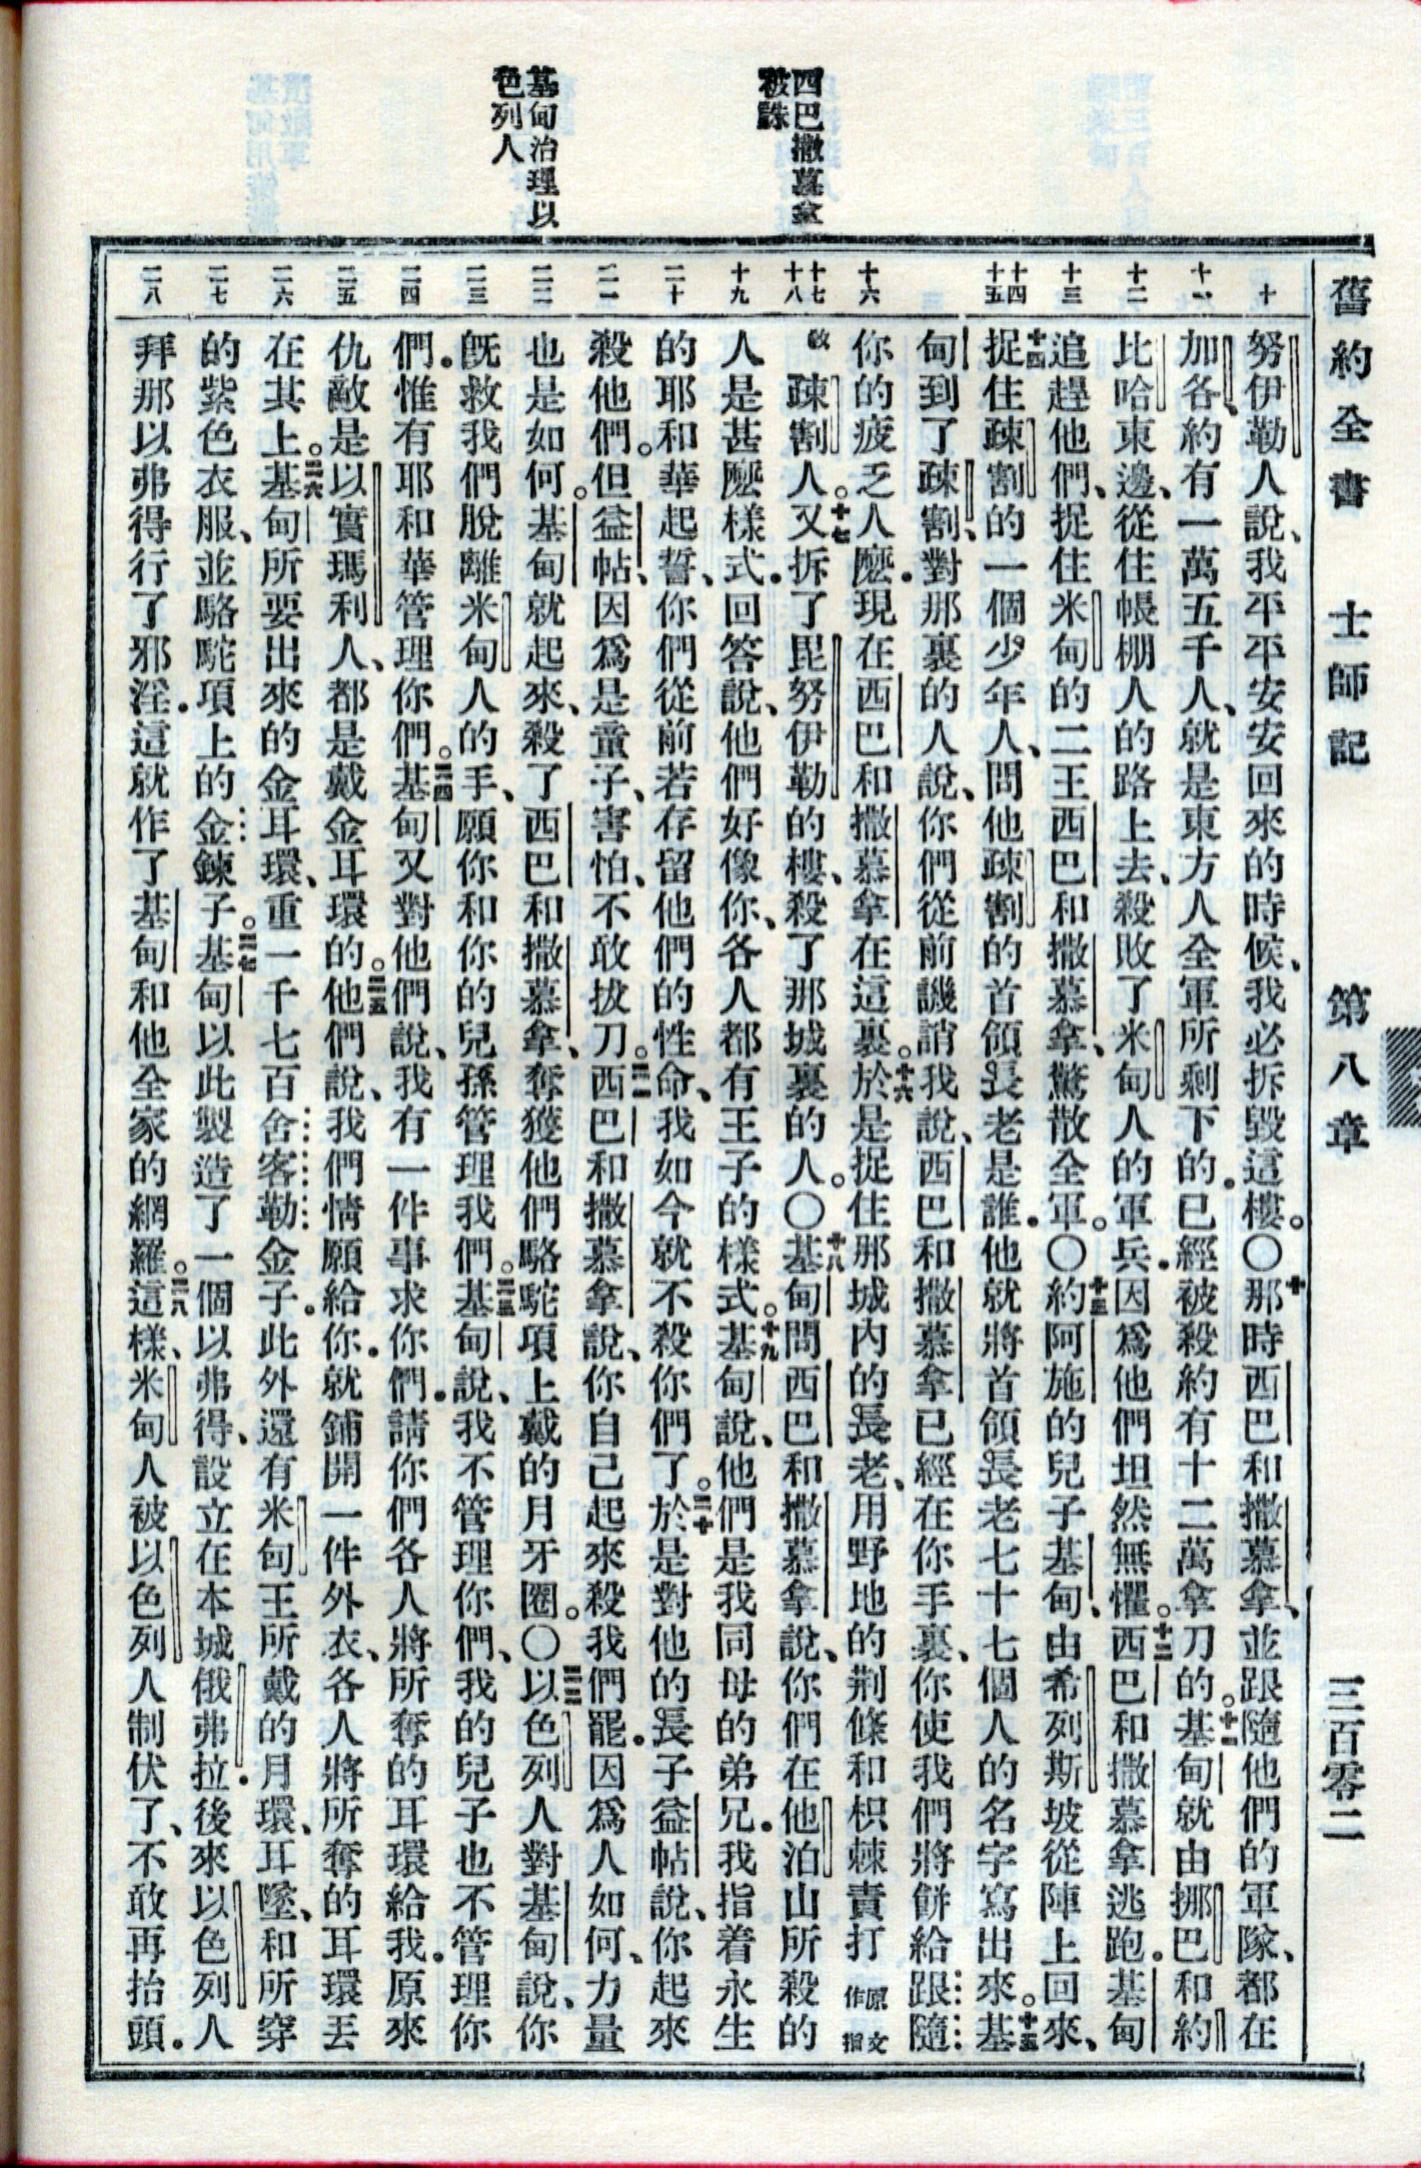 舊約全書 士師記 第八章 三百零二
四巴撒慕拿
被誅
基甸治理以
色列人
十
十一
十二
十三
十四
十五
十六
十七
十八
十九
二十
二一
二二
二三
二四
二五
二六
二七
二八
努伊勒人說、我平平安安回來的時候、我必拆毀這樓。〇十那時西巴和撒慕拿、並跟隨他們的軍隊、都在
加各、約有一萬五千人、就是東方人全軍所剩下的.已經被殺約有十二萬拿刀的。十一基甸就由挪巴和約
比哈東邊、從住帳棚人的路上去、殺敗了米甸人的軍兵.因爲他們坦然無懼。十二西巴和撒慕拿逃跑.基甸
追趕他們、捉住米甸的二王西巴和撒慕拿、驚散全軍。〇十三約阿施的兒子基甸、由希列斯坡從陣上回來、
十四捉住疎割的一個少年人、問他疎割的首領長老是誰.他就將首領長老七十七個人的名字寫出來。十五基
甸到了疎割、對那裏的人說、你們從前譏誚我說、西巴和撒慕拿已經在你手裏、你使我們將餅給跟隨
你的疲乏人麼.現在西巴和撒慕拿在這裏。十六於是捉住那城內的長老、用野地的荆條和枳棘責打原文作指
敎疎割人。十七又拆了毘努伊勒的樓、殺了那城裏的人。〇十八基甸問西巴和撒慕拿說、你們在他泊山所殺的
人是甚麼樣式.回答說、他們好像你、各人都有王子的樣式。十九基甸說、他們是我同母的弟兄.我指着永生
的耶和華起誓、你們從前若存留他們的性命、我如今就不殺你們了。二十於是對他的長子益帖說、你起來
殺他們。但益帖、因爲是童子、害怕、不敢拔刀。二一西巴和撒慕拿說、你自己起來殺我們罷.因爲人如何、力量
也是如何。基甸就起來、殺了西巴和撒慕拿、奪獲他們駱駝項上戴的月牙圈。〇二二以色列人對基甸說、你
旣救我們脫離米甸人的手、願你和你的兒孫管理我們。二三基甸說、我不管理你們、我的兒子也不管理你
們.惟有耶和華管理你們。二四基甸又對他們說、我有一件事求你們.請你們各人將所奪的耳環給我.原來
仇敵是以實瑪利人、都是戴金耳環的。二五他們說、我們情願給你.就鋪開一件外衣、各人將所奪的耳環丟
在其上。二六基甸所要出來的金耳環、重一千七百舍客勒金子.此外還有米甸王所戴的月環、耳墜、和所穿
的紫色衣服、並駱駝項上的金鍊子。二七基甸以此製造了一個以弗得、設立在本城俄弗拉.後來以色列人
拜那以弗得行了邪淫.這就作了基甸和他全家的網羅。二八這樣、米甸人被以色列人制伏了、不敢再抬頭.